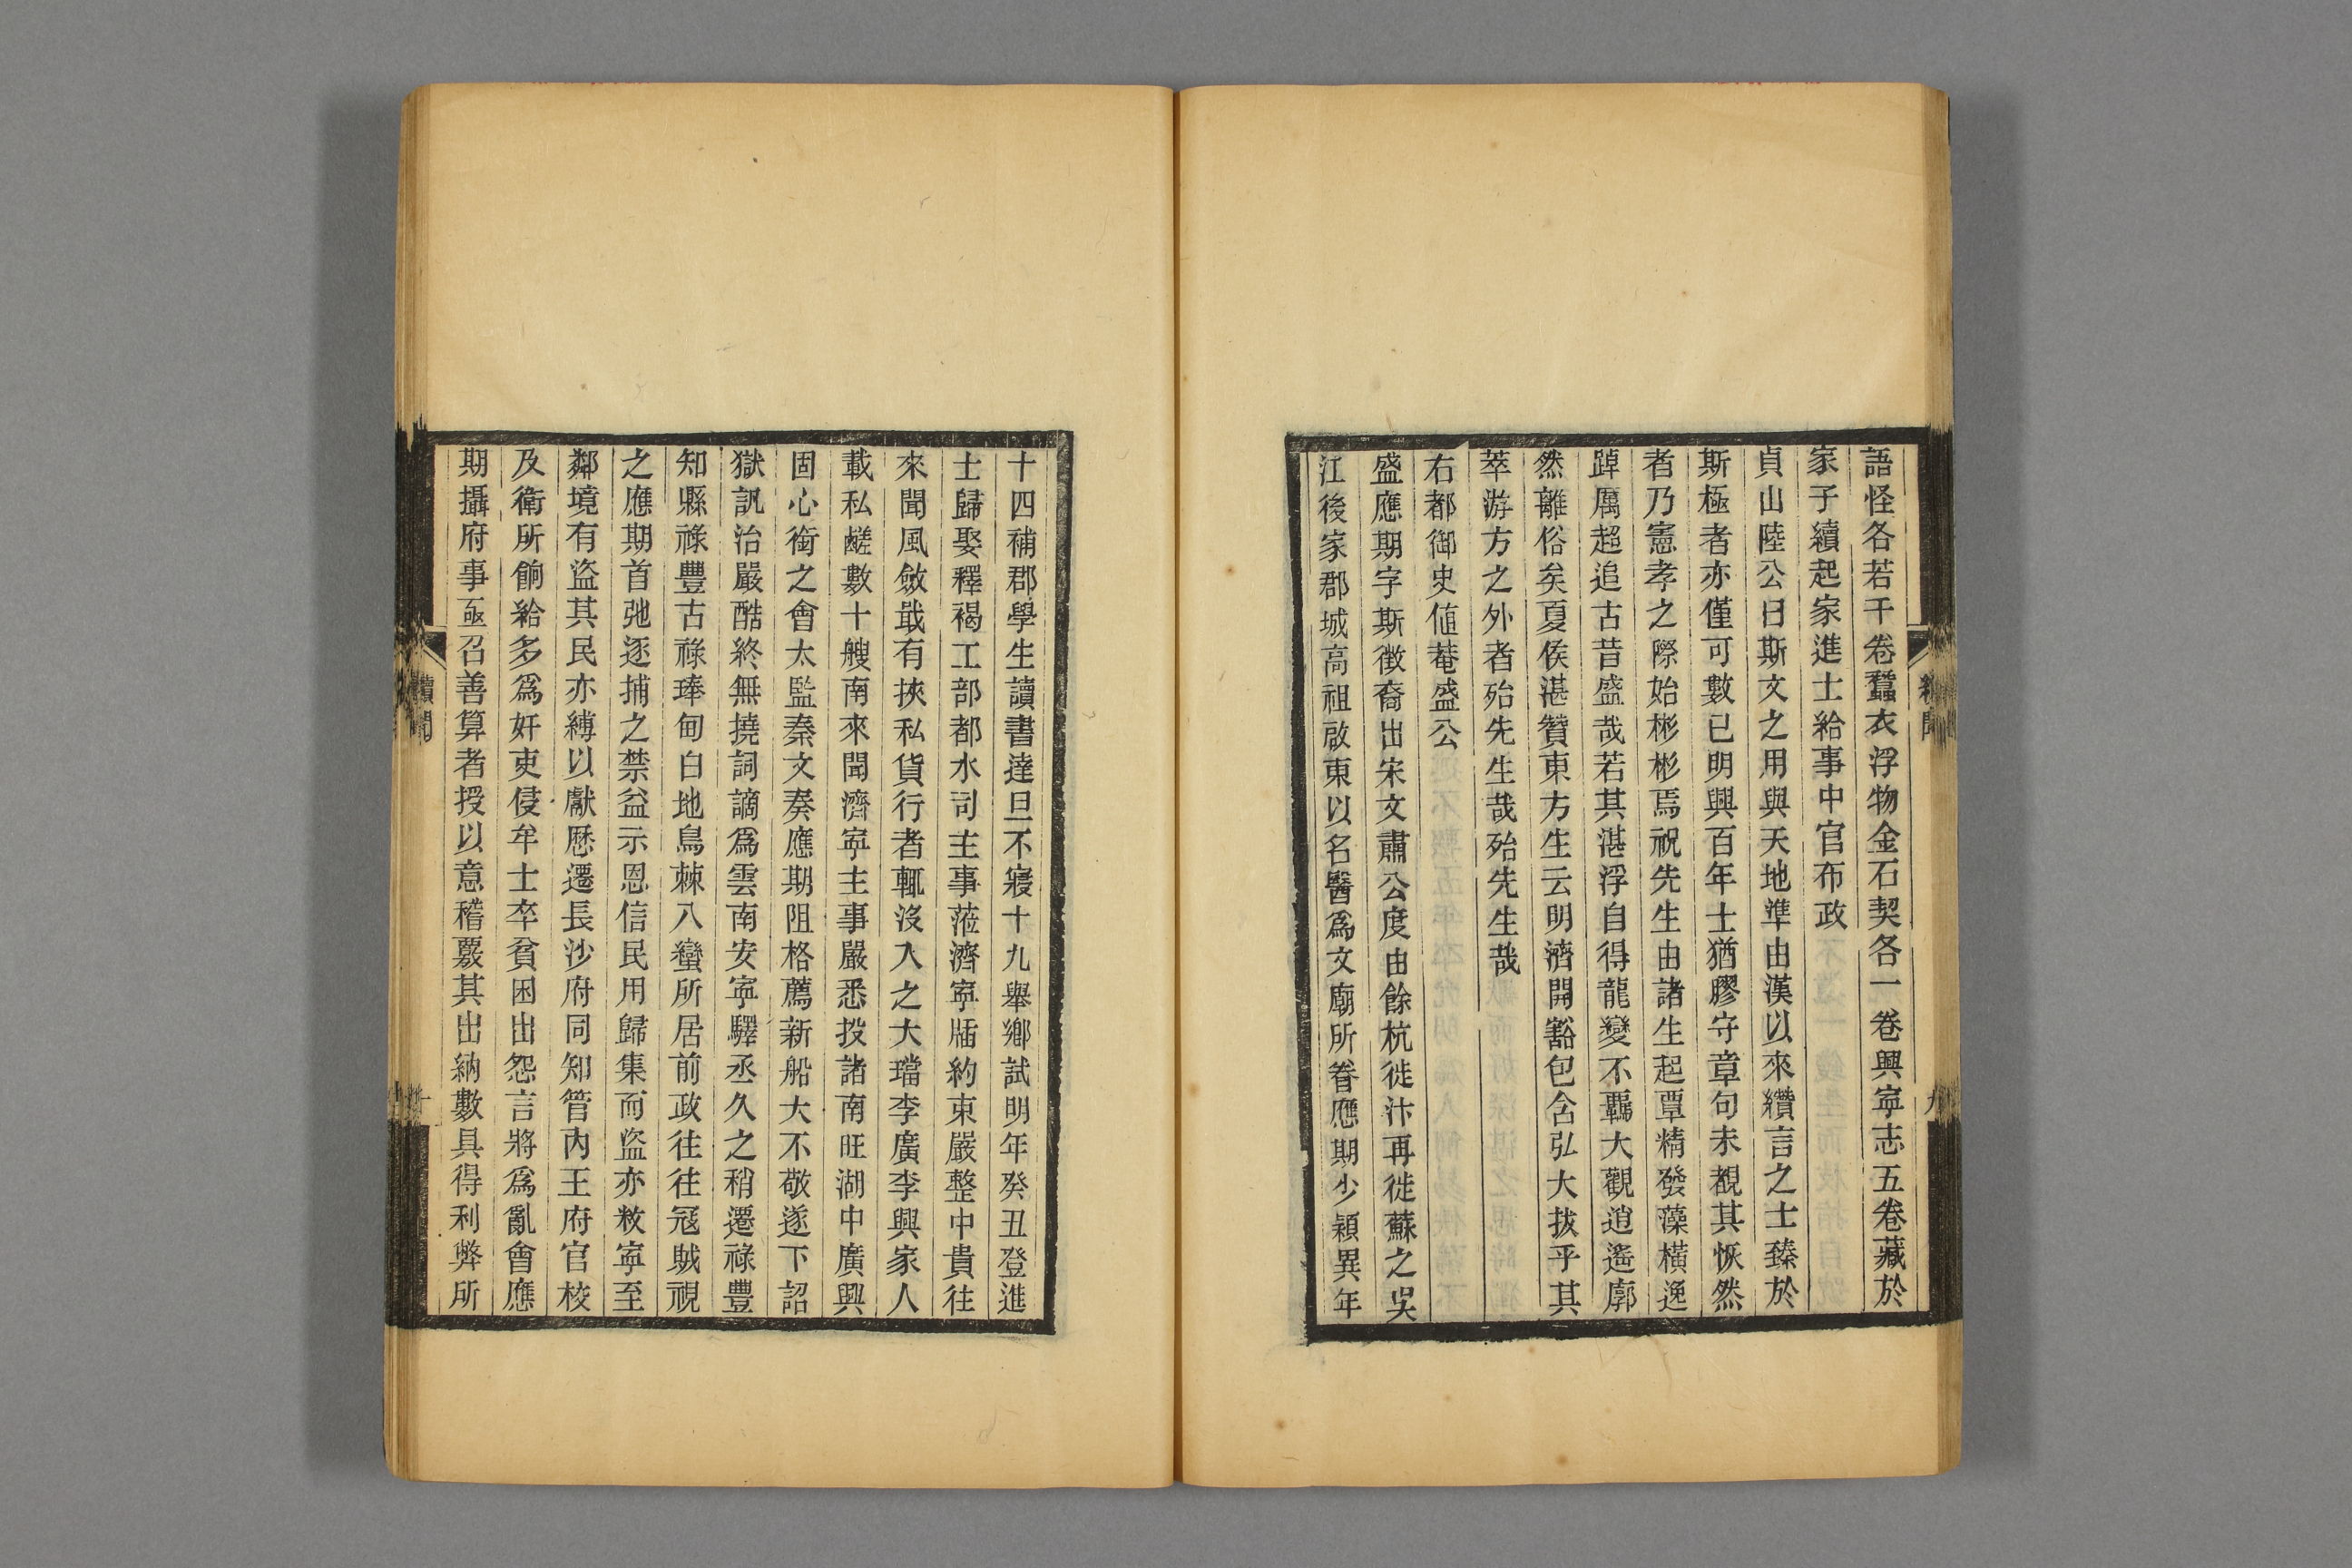 語怪各若干卷蠶衣浮物金石契各一卷興寧志五卷藏於
家子續起家進士給事中官布政
貞山陸公曰斯文之用與天地準由漢以來纘言之士臻於
斯極者亦僅可數已明興百年士猶膠守章句未覩其恢然
者乃憲孝之際始彬彬焉祝先生由諸生起覃精發藻橫逸
踔厲超追古昔盛哉若其湛浮自得龍變不羈大觀逍遙廓
然離俗矣夏侯湛贊東方生云明濟開豁包含弘大拔乎其
萃游方之外者殆先生哉殆先生哉
右都御史値菴盛公
盛應期字斯徵裔出宋文肅公度由餘杭徙汴再徙蘇之吳
江後家郡城高祖啟東以名醫爲文廟所眷應期少穎異年
十四補郡學生讀書達旦不寢十九舉鄉試明年癸丑登進
士歸娶釋褐工部都水司主事蒞濟寧牐約束嚴整中貴往
來聞風斂戢有挾私貨行者輒沒入之大璫李廣李興家人
載私鹺數十艘南來聞濟寧主事嚴悉投諸南旺湖中廣興
固心銜之會太監秦文奏應期阻格薦新船大不敬遂下詔
獄訊治嚴酷終無撓詞謫爲雲南安寧驛丞久之稍遷祿豐
知縣祿豐古祿琫甸白地鳥棘八蠻所居前政往往冦賊視
之應期首弛逐捕之禁益示恩信民用歸集而盜亦救寧至
鄰境有盜其民亦縛以獻歷遷長沙府同知管內王府官校
及衛所餉給多爲奸吏侵牟士卒貧困出怨言將爲亂會應
期攝府事亟召善算者授以意稽覈其出納數具得利弊所